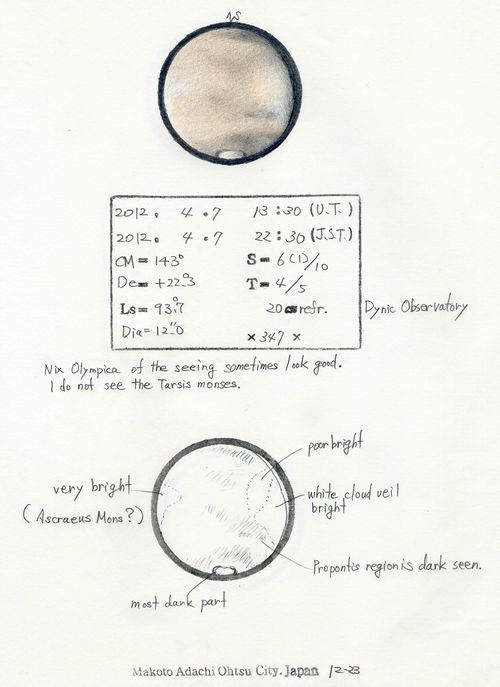 S
2012. 4.7 13:30 (U.T.)
2012. 4.7 22:30 (J.S.T.)
CM= 143° S= 6(1)/10
De= +22.°3 T= 4/5
Ls= 93.°7 20cm refr. Dynic Observatory
Dia= 12."0 ×347×
Nix Olympica of the seeing sometimes look good.
I do not see the Tarsis monses.
poor bright
very bright
white cloud veil
bright
(Ascraeus Mons?)
Propontis region is dark seen.
most dark part
Makoto Adachi Ohtsu City. Japan 12-23